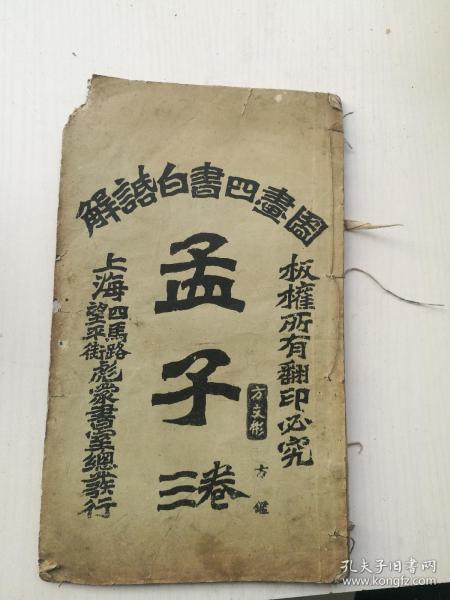 圖畫四書白話解
板權所有翻印必究
孟子
卷三
方文彬
方鑑
上海四馬路望平街彪蒙書室總發行
孔夫子旧书网
www.kongfz.com